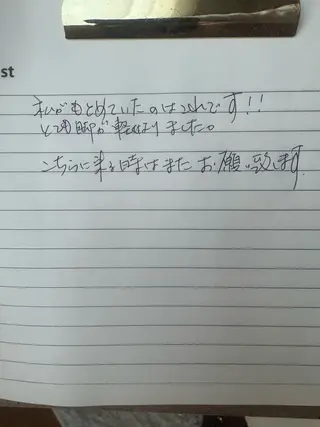 st
私がもとめていたのはこれです!!
とても脚が軽くなりました。
こちらに来る時はまたお願い致します